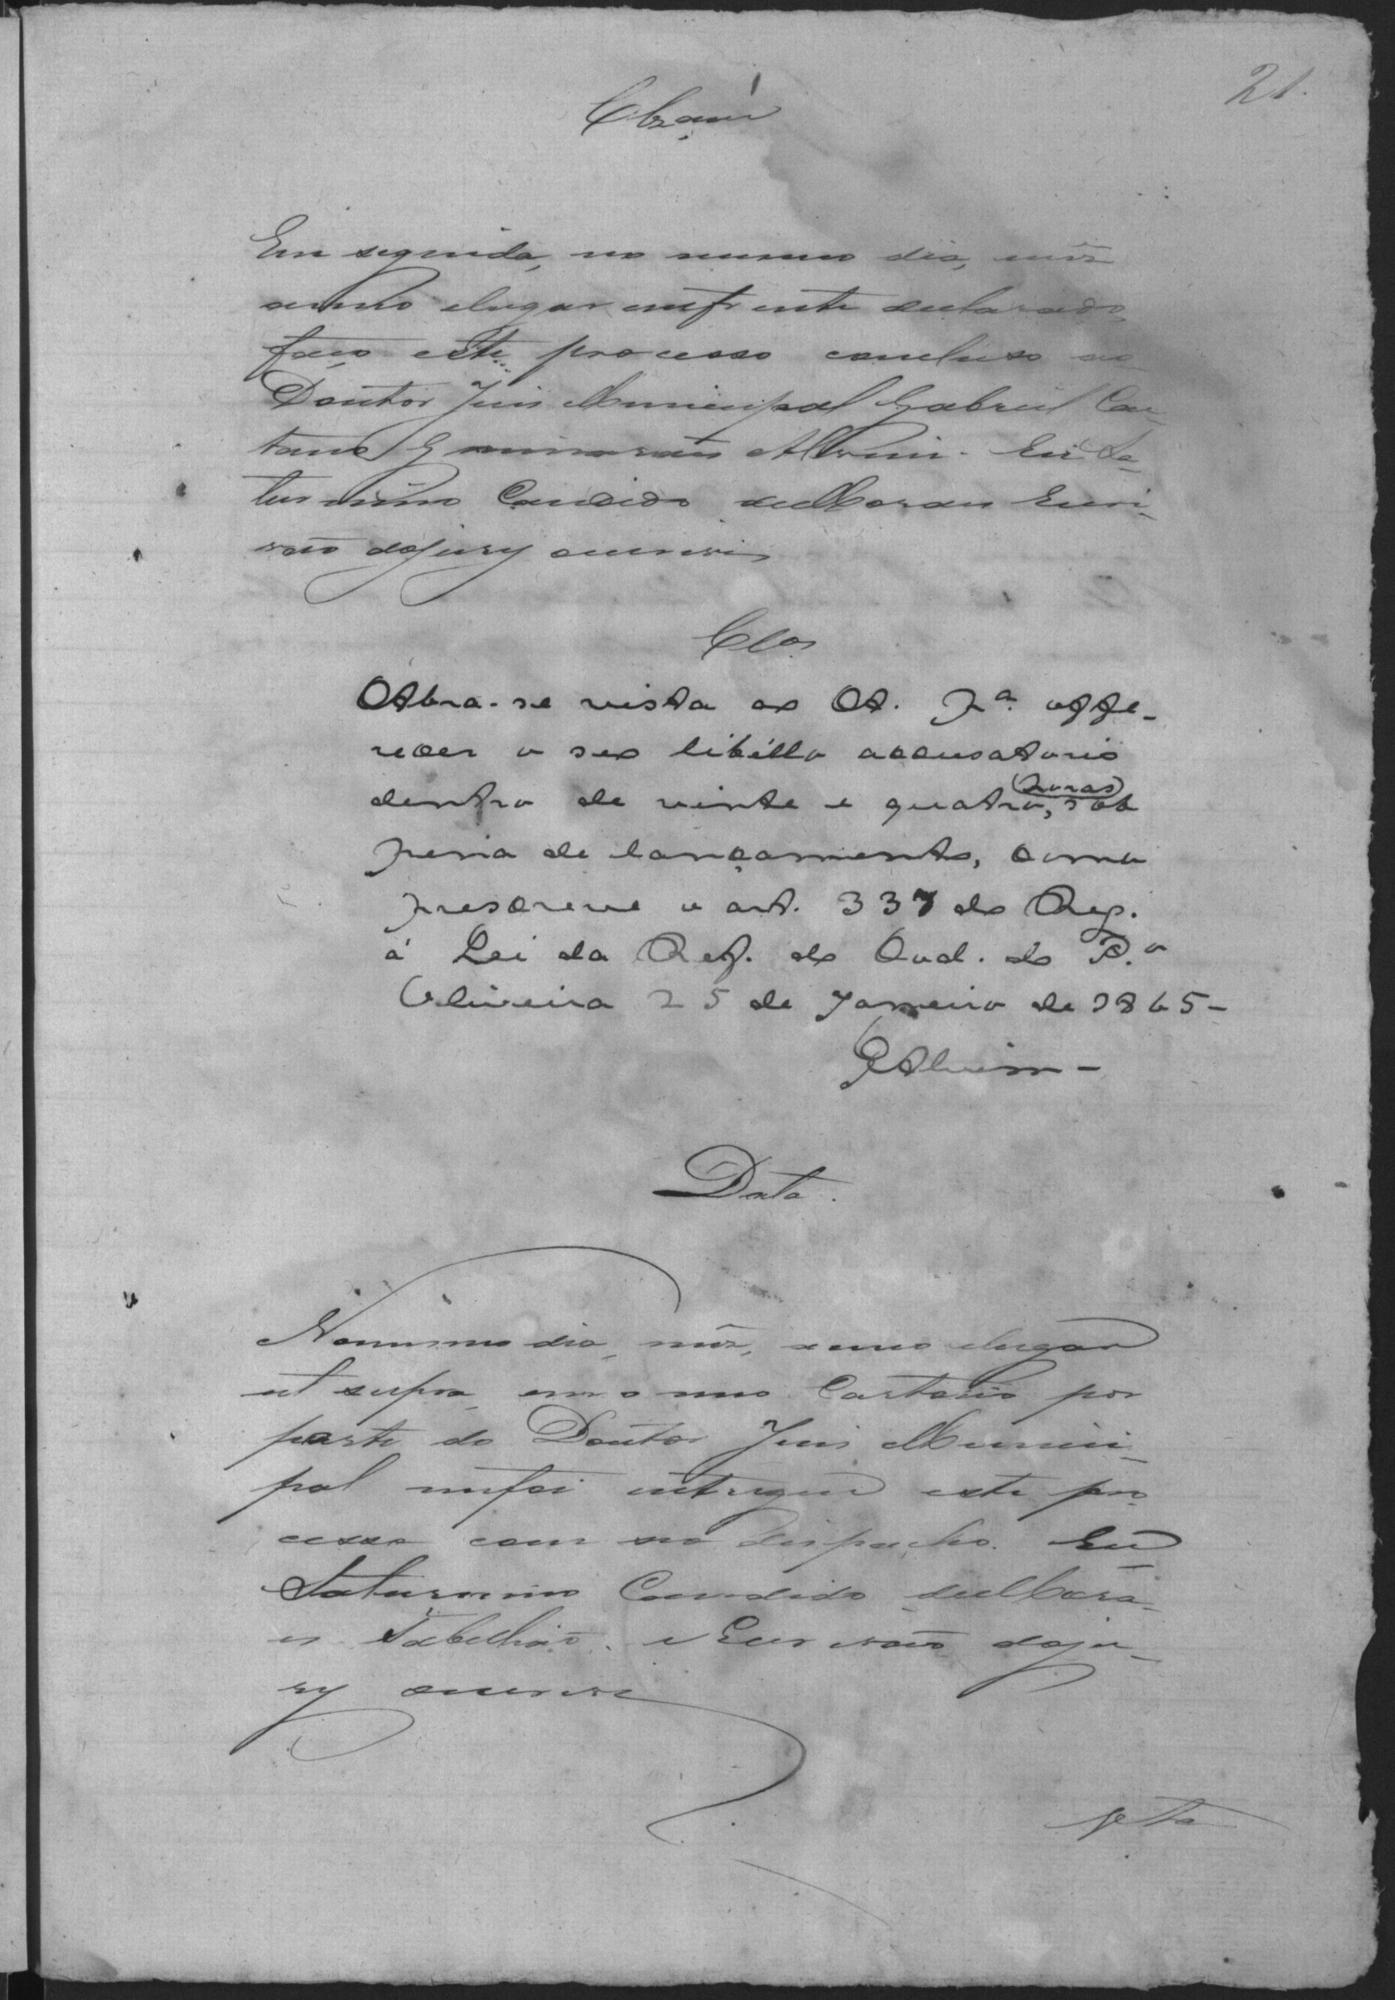 21.
Clzam
Em seguida, no mesmo dia, mêz
anno elugar enfrente declarado,
faço este processo concluso ao
Doutor Juis Municipal Gabriel Cae-
tano Guimarães Alvim. Eu Sa-
turnino Candido de Moraes Escri-
vão dojury escrevi
Clos
Abra-se vista ao A. pª offe-
recer o seo libéllo accusatorio
dentro de vinte e quatro, (horas) sob
pena de lançamento, como
prescreve o art. 337 do Reg.
á Lei da Ref. do Cod. do P.º
Oliveira 25 de Janeiro de 1865-
GAlvim-
Data.
Nomesmo dia, mêz, anno elugar
ut supra, em o meo Cartorio por
parte do Doutor Juis Munici-
pal mefoi entregue este pro-
cesso com seo despacho. Eu
Saturnino Candido de Mora-
es Tabelhião e Escrivão doju-
ry escrevi
Vta